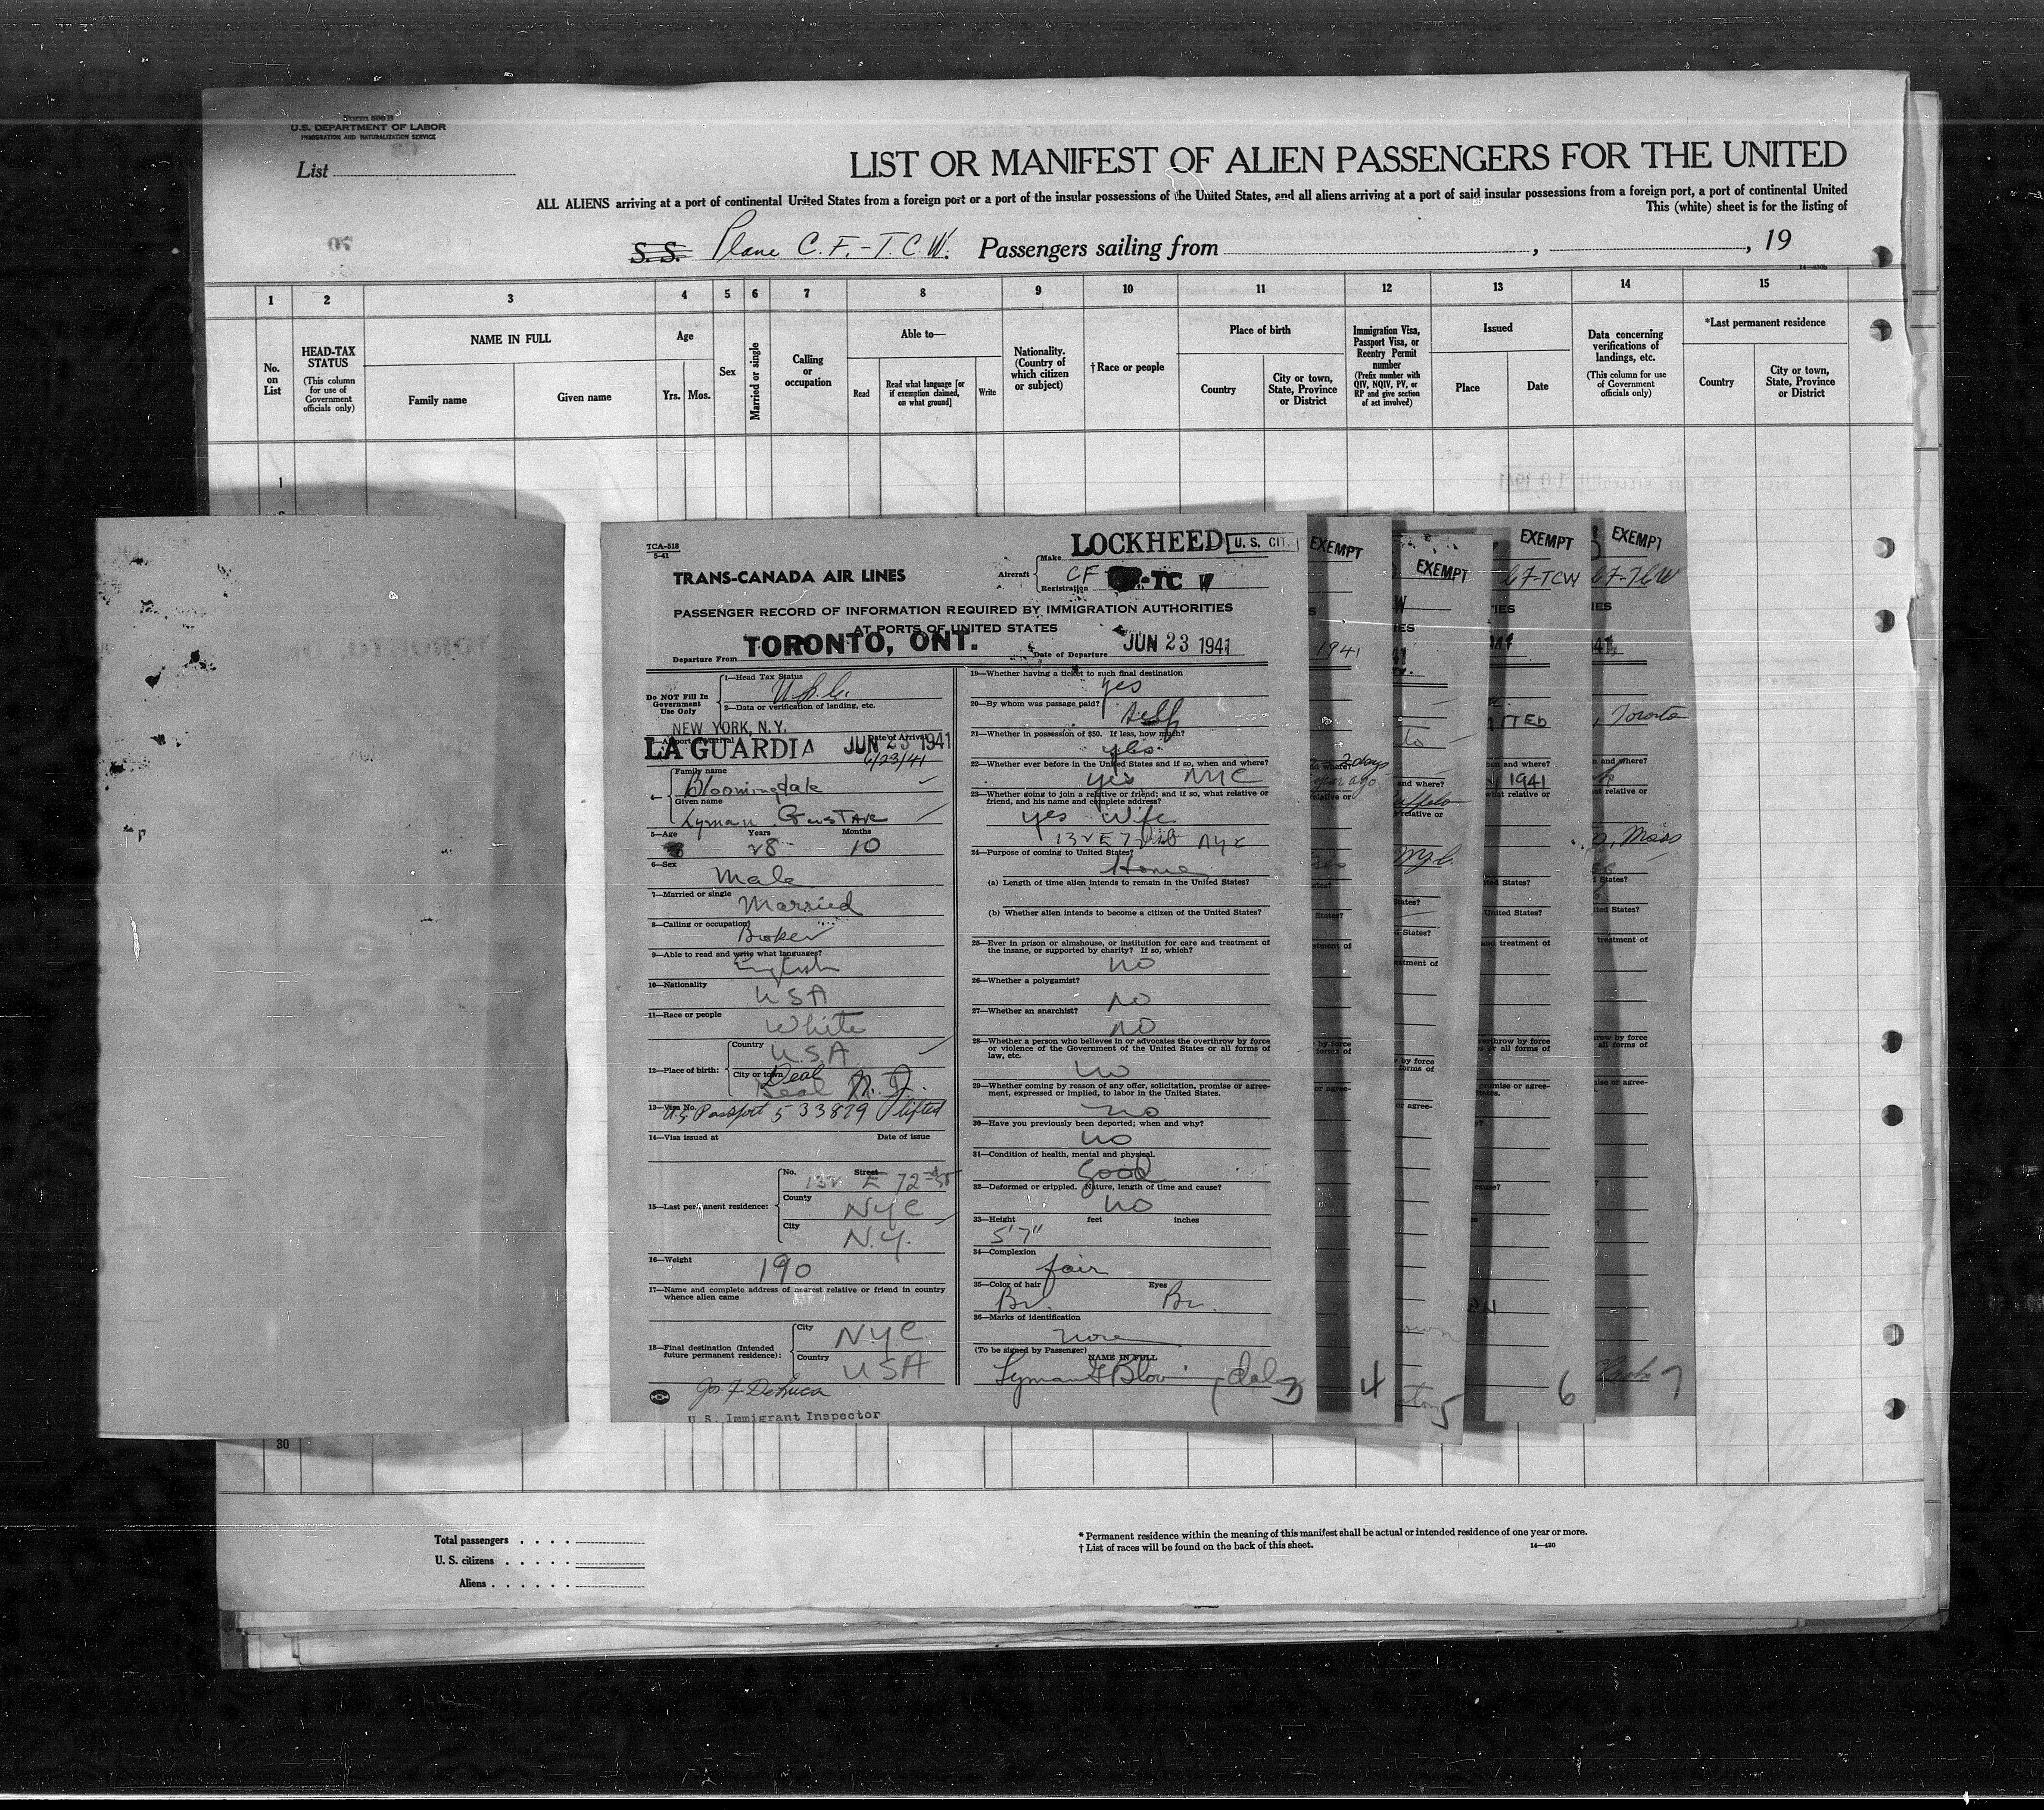 Form 500 B
U.S. DEPARTMENT OF LABOR
IMMIGRATION AND NATURALIZATION SERVICE
List
LIST OR MANIFEST OF ALIEN PASSENGERS FOR THE UNITED
ALL ALIENS arriving at a port of continental United States from a foreign port or a port of the insular possessions of the United States, and all aliens arriving at a port of said insular possessions from a foreign port, a port of continental United
This (white) sheet is for the listing of
S.S. Plane C.F.-T.C.W. Passengers sailing from , , 19
1 2 3 4 5 6 7 8 9 10 11 12 13 14 15
No. on List
HEAD-TAX STATUS
(This column for use of Government officials only)
NAME IN FULL
Family name Given name
Age
Yrs. Mos.
Sex
Married or single
Calling or occupation
Able to—
Read
Read what language [or if exemption claimed, on what ground]
Write
Nationality. (Country of which citizen or subject)
† Race or people
Place of birth
Country
City or town, State, Province or District
Immigration Visa, Passport Visa, or Reentry Permit number
(Prefix number with QIV, NQIV, PV, or RP and give section of act involved)
Issued
Place Date
Data concerning verifications of landings, etc.
(This column for use of Government officials only)
*Last permanent residence
Country
City or town, State, Province or District
1
TCA-518
5-41
LOCKHEED U. S. CIT.
TRANS-CANADA AIR LINES
Aircraft
Make
CF -TC W
Registration
PASSENGER RECORD OF INFORMATION REQUIRED BY IMMIGRATION AUTHORITIES
AT PORTS OF UNITED STATES
Departure From TORONTO, ONT. Date of Departure JUN 23 1941
Do NOT Fill In Government Use Only
1—Head Tax Status
U.S.C.
2—Data or verification of landing, etc.
NEW YORK, N.Y.
LA GUARDIA JUN 23 1941
Date of Arrival
6/23/41
Family name
Bloomingdale
Given name
Lyman Gustave
5—Age Years Months
28 10
6—Sex
Male
7—Married or single
Married
8—Calling or occupation?
Broker
9—Able to read and write what languages?
English
10—Nationality
USA
11—Race or people
White
12—Place of birth:
Country
U.S.A.
City or town
Deal
Deal N.J.
13—Visa No.
U.S. Passport 533879 lifted
14—Visa issued at Date of issue
15—Last permanent residence:
No. Street
132 E 72nd St
County
NYC
City
N.Y.
16—Weight
190
17—Name and complete address of nearest relative or friend in country
whence alien came
18—Final destination (Intended future permanent residence):
City
NYC
Country
USA
Jos F DeLuca
U.S. Immigrant Inspector
19—Whether having a ticket to such final destination
Yes
20—By whom was passage paid?
Self
21—Whether in possession of $50. If less, how much?
yes
22—Whether ever before in the United States and if so, when and where?
yes NYC
23—Whether going to join a relative or friend; and if so, what relative or
friend, and his name and complete address?
yes Wife
132 E 72nd NYC
24—Purpose of coming to United States?
Home
(a) Length of time alien intends to remain in the United States?
(b) Whether alien intends to become a citizen of the United States?
25—Ever in prison or almshouse, or institution for care and treatment of
the insane, or supported by charity? If so, which?
no
26—Whether a polygamist?
no
27—Whether an anarchist?
no
28—Whether a person who believes in or advocates the overthrow by force
or violence of the Government of the United States or all forms of
law, etc.
no
29—Whether coming by reason of any offer, solicitation, promise or agree-
ment, expressed or implied, to labor in the United States.
no
30—Have you previously been deported; when and why?
no
31—Condition of health, mental and physical.
Good
32—Deformed or crippled. Nature, length of time and cause?
no
33—Height feet inches
5'7"
34—Complexion
fair
35—Color of hair Eyes
Br. Br.
36—Marks of identification
none
(To be signed by Passenger)
NAME IN FULL
Lyman G Bloomingdale
3
EXEMPT
1941
4
EXEMPT
N.Y.C.
5
EXEMPT
CF-TCW
1941
6
EXEMPT
CF-TCW
, Toronto
, Mass
7
30
Total passengers
U. S. citizens
Aliens
* Permanent residence within the meaning of this manifest shall be actual or intended residence of one year or more.
† List of races will be found on the back of this sheet.
14—430